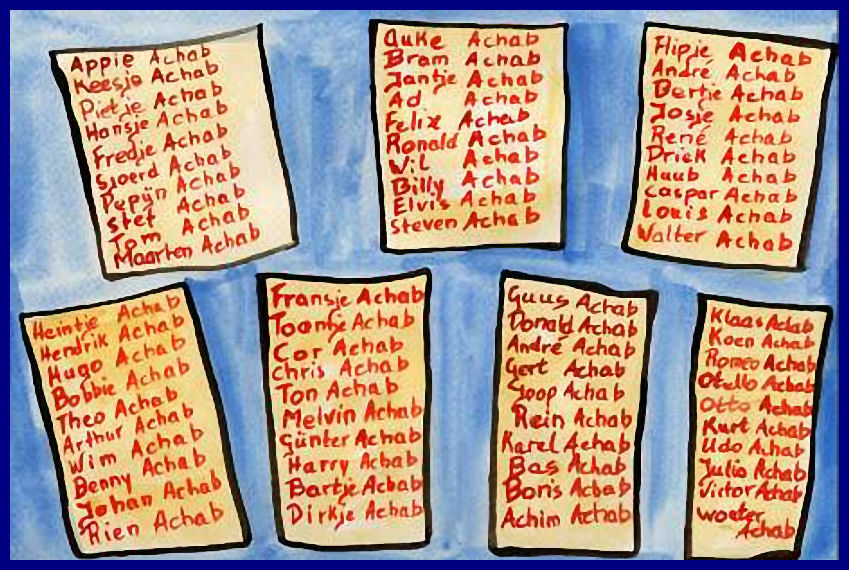 Appie Achab
Keesje Achab
Pietje Achab
Hansje Achab
Fredje Achab
Sjoerd Achab
Pepijn Achab
Stef Achab
Tom Achab
Maarten Achab
Auke Achab
Bram Achab
Jantje Achab
Ad Achab
Felix Achab
Ronald Achab
Wil Achab
Billy Achab
Elvis Achab
Steven Achab
Flipje Achab
André Achab
Bertje Achab
Josje Achab
René Achab
Driek Achab
Huub Achab
Caspar Achab
Louis Achab
Walter Achab
Heintje Achab
Hendrik Achab
Hugo Achab
Bobbie Achab
Theo Achab
Arthur Achab
Wim Achab
Benny Achab
Johan Achab
Rien Achab
Fransje Achab
Toontje Achab
Cor Achab
Chris Achab
Ton Achab
Melvin Achab
Günter Achab
Harry Achab
Bartje Achab
Dirkje Achab
Guus Achab
Donald Achab
André Achab
Gert Achab
Joop Achab
Rein Achab
Karel Achab
Bas Achab
Boris Achab
Achim Achab
Klaas Achab
Koen Achab
Romeo Achab
Otello Achab
Otto Achab
Kurt Achab
Udo Achab
Julio Achab
Victor Achab
Wouter
Achab